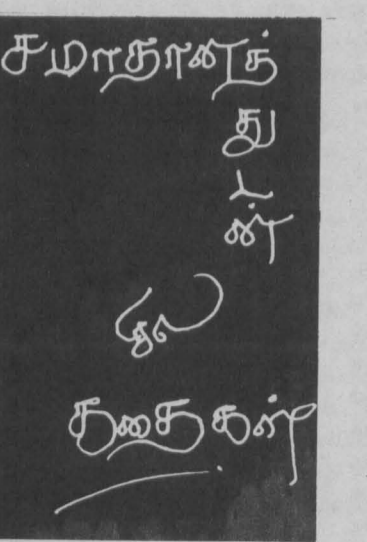 சமாதானத்
து
ட
ன்
சில
கதைகள்